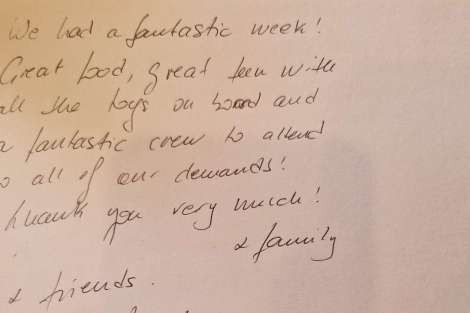 We had a fantastic week!
Great food, great fun with
all the toys on board and
a fantastic crew to attend
to all of our demands!
Thank you very much!
& family
& friends.